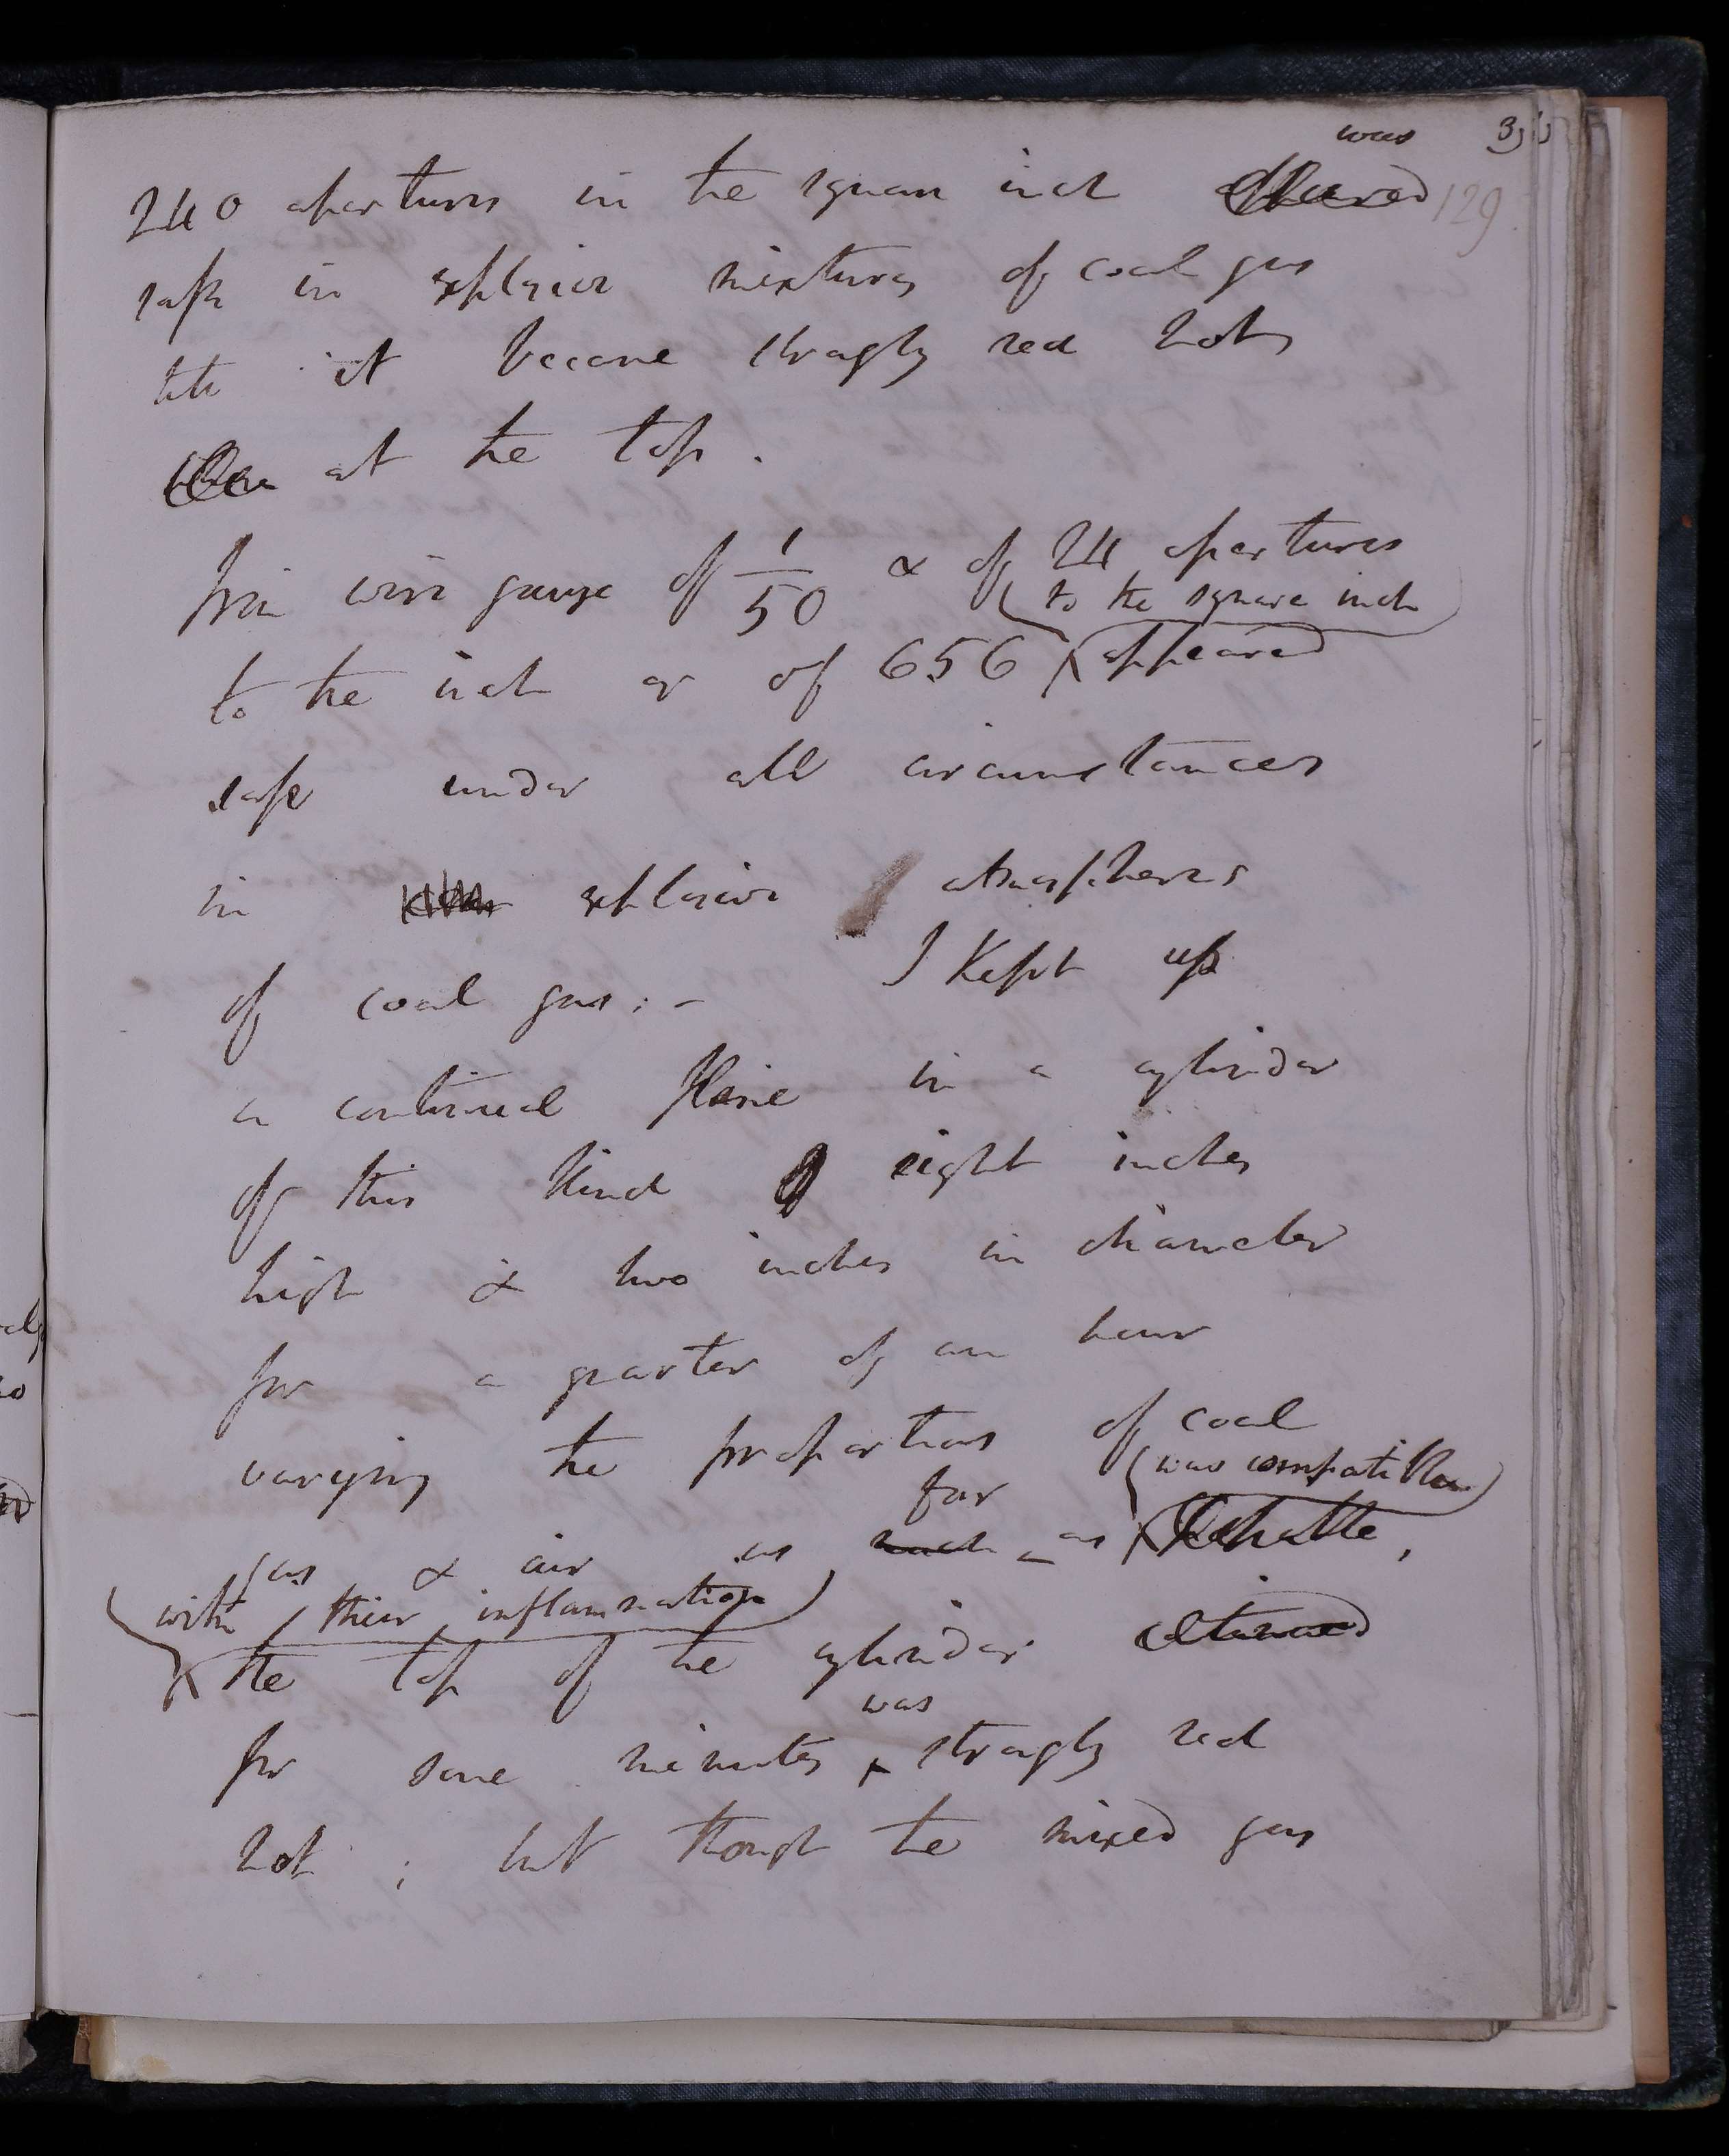 was
240 apertures in the square inch appeared 129
safe in explosive mixtures of coal gas
till it became strongly red hot
at the top.
Iron wire gauze of 1/50 & of 24 apertures
to the square inch
to the inch or of 656 appeared
safe under all circumstances
in explosive atmospheres
of coal gas; - I kept up
a continued flame in a cylinder
of this kind eight inches
high & two inches in diameter
for a quarter of an hour
varying the proportions of coal
far was compatible
gas & air as much as
with their inflammation
the top of the cylinder
was
for some minutes strongly red
hot; but though the mixed gas